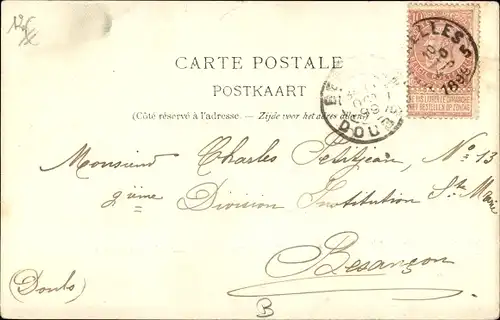 CARTE POSTALE
POSTKAART
(Côté réservé à l'adresse. — Zijde voor het adres dienende)
Monsieur Charles Petitjean, No 13
2ième Division Institution Ste Marie
Besançon
(Doubs)
B
ELLES 5
1899
DOUBS
10
NE PAS LIVRER LE DIMANCHE
NIET BESTELLEN OP ZONDAG